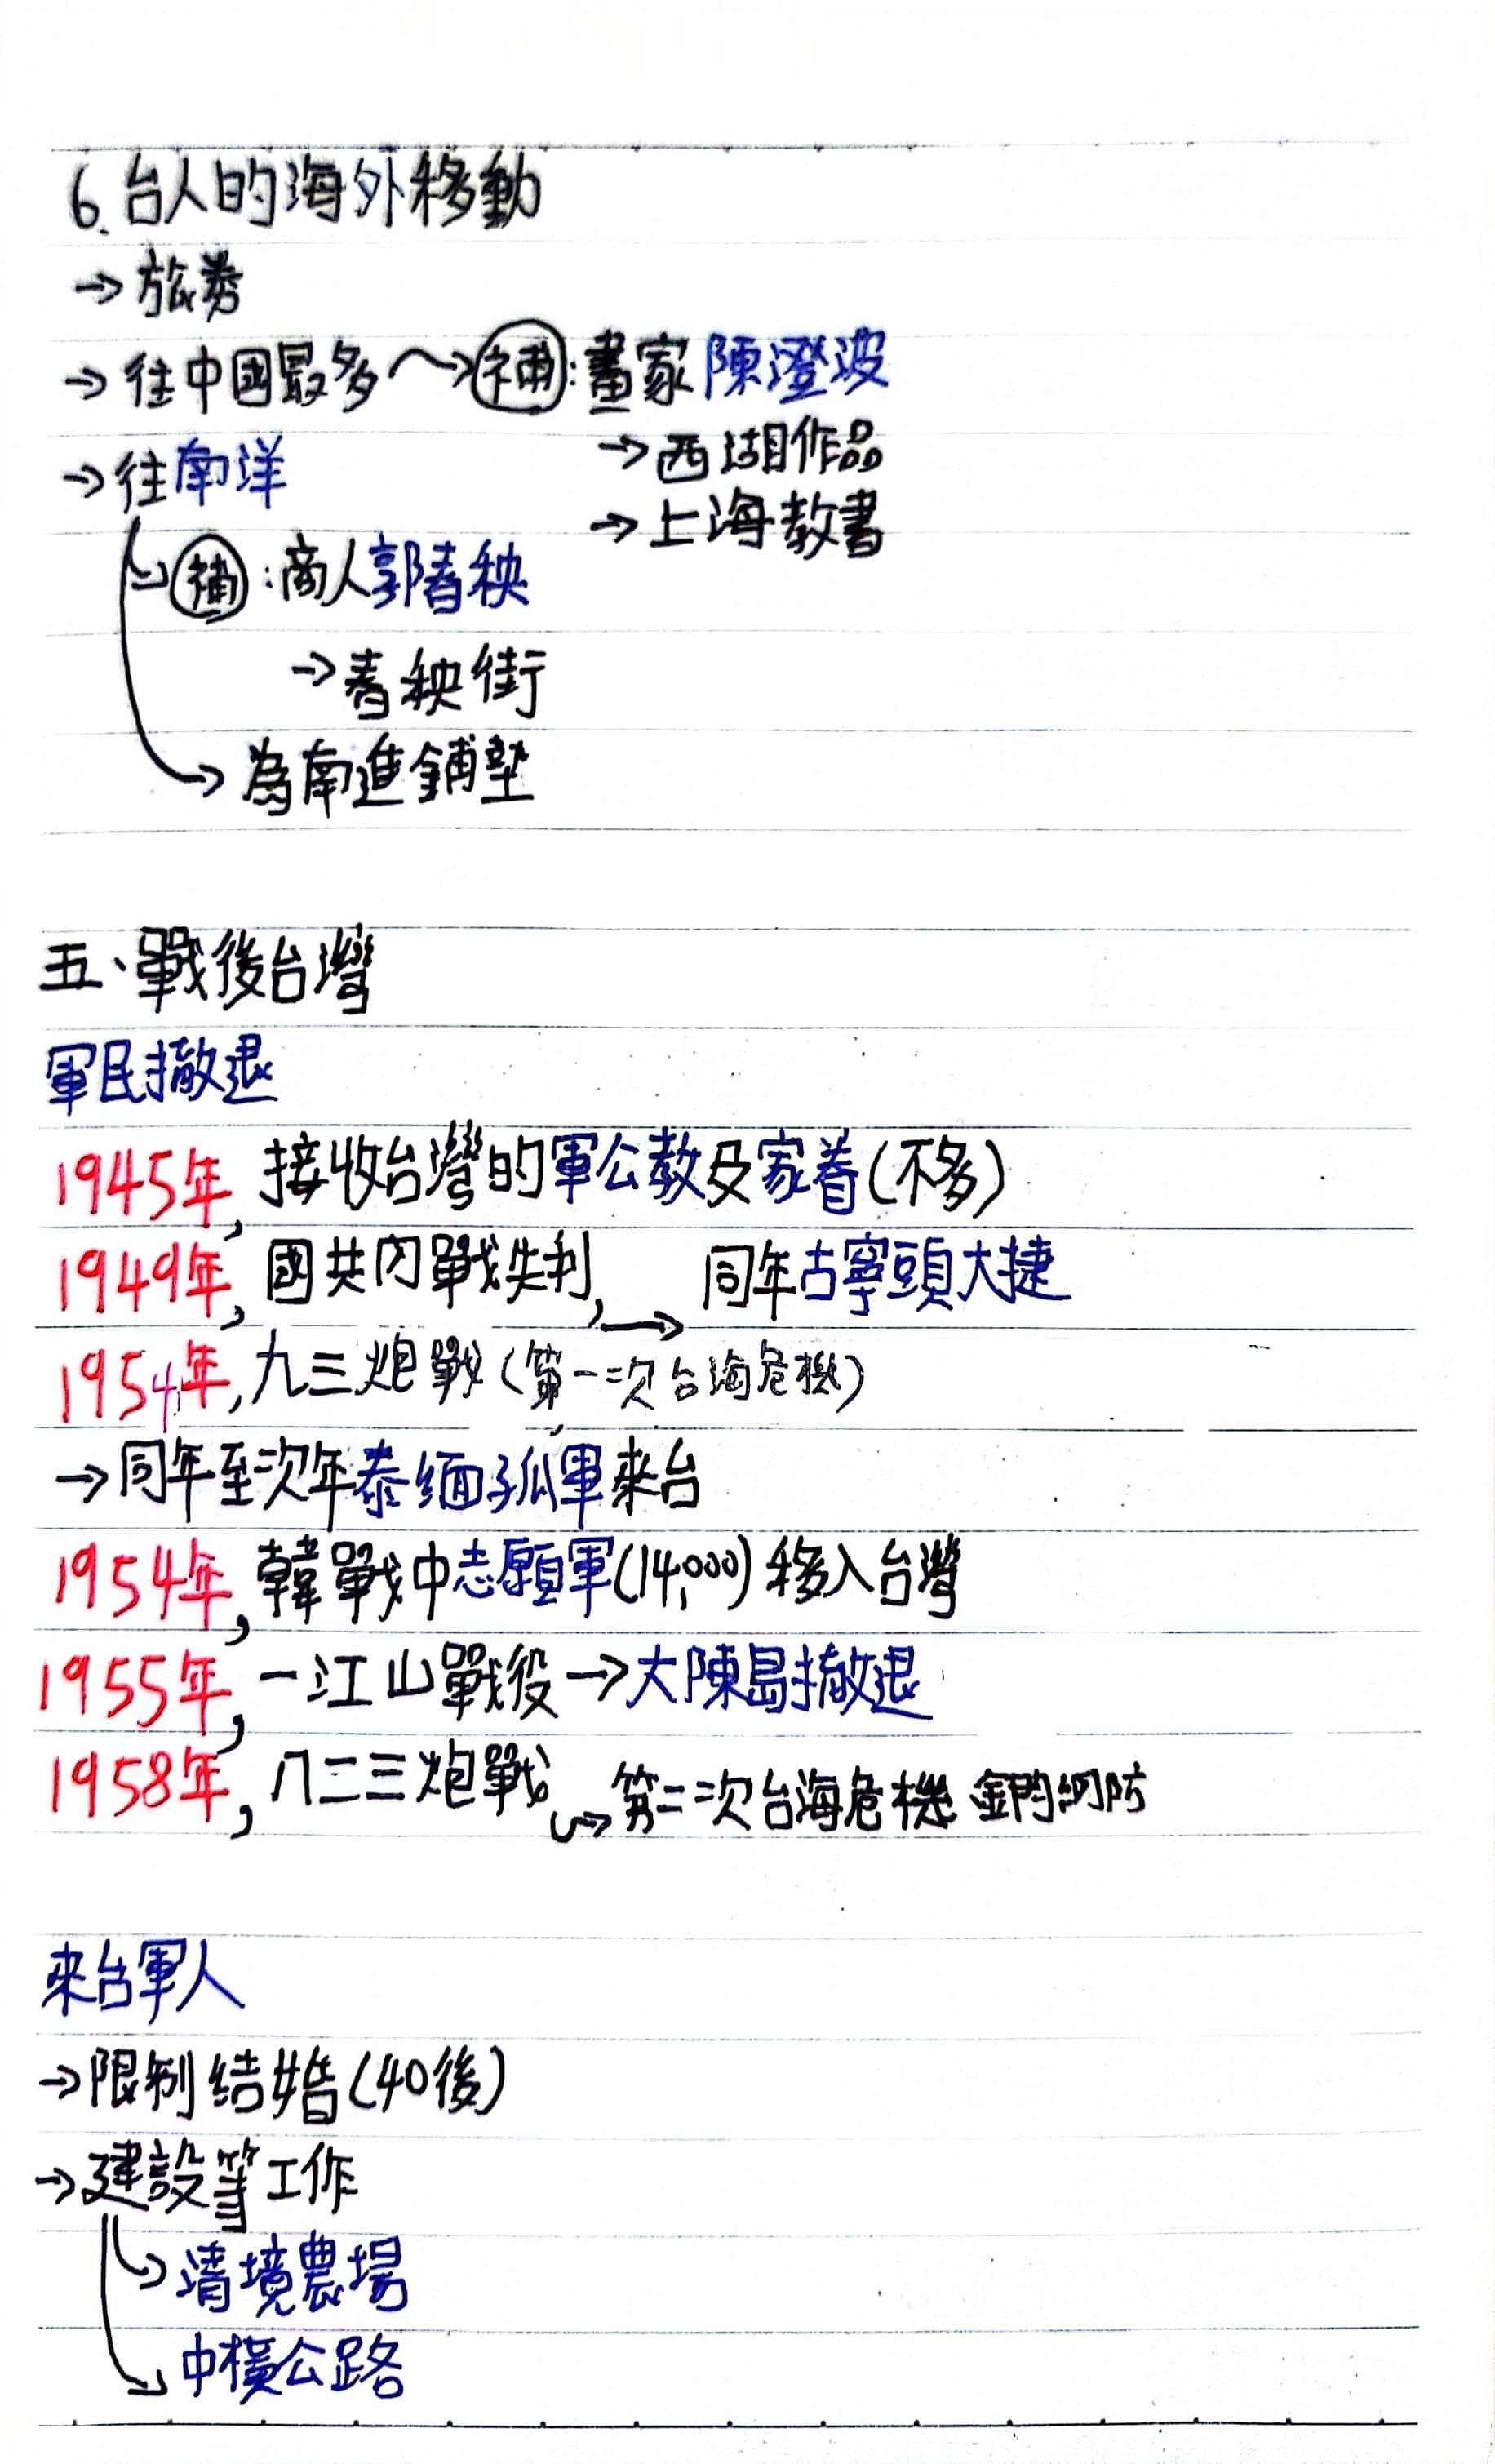 6. 台人的海外移動
→旅券
→往中國最多→補:畫家陳澄波
→西湖作品
→上海教書
→往南洋
→補:商人郭春秧
→春秧街
→為南進鋪墊
五、戰後台灣
軍民撤退
1945年,接收台灣的軍公教及家眷(不多)
1949年,國共內戰失利,→同年古寧頭大捷
1954年,九三炮戰(第一次台海危機)
→同年至次年泰緬孤軍來台
1954年,韓戰中志願軍(14,000)移入台灣
1955年,一江山戰役→大陳島撤退
1958年,八二三炮戰→第二次台海危機 金門網防
來台軍人
→限制結婚(40後)
→建設等工作
→清境農場
→中橫公路